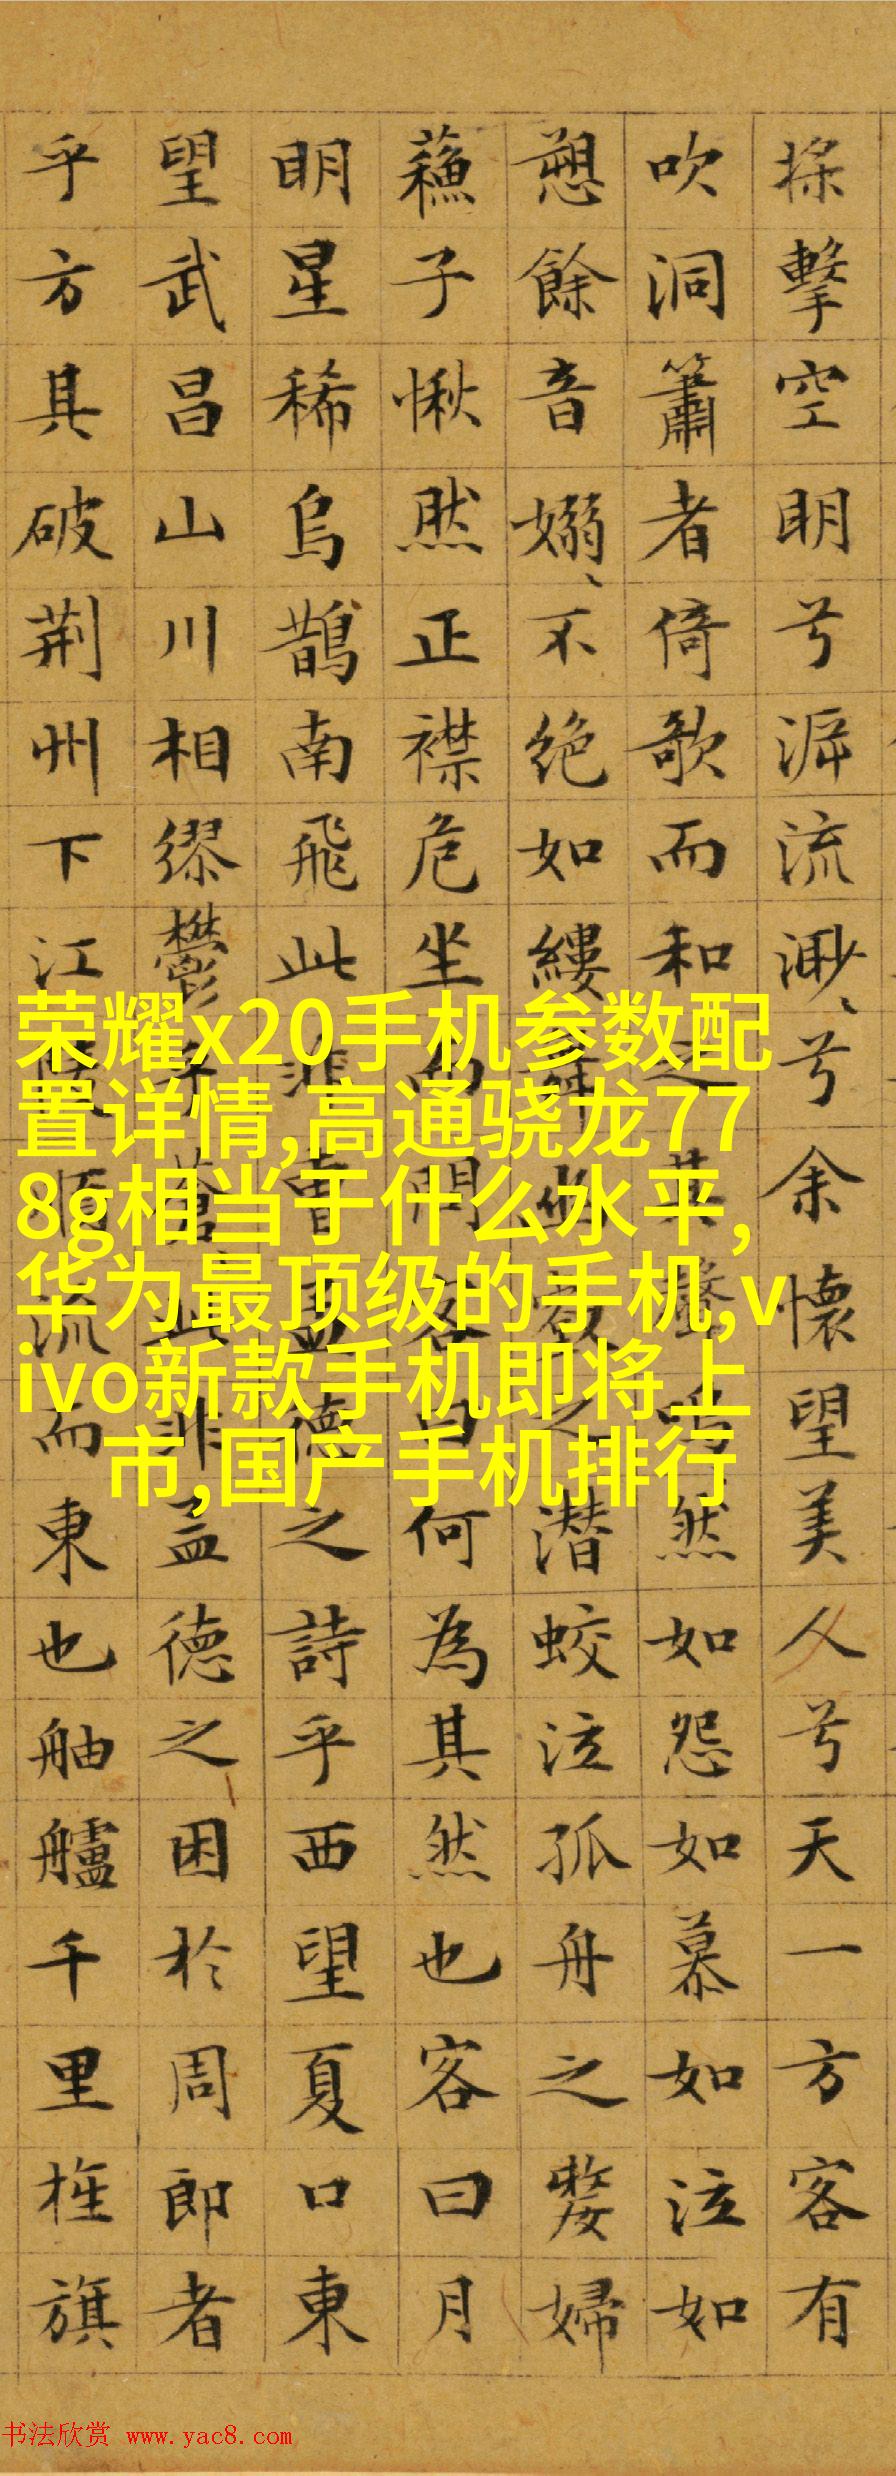 擊空明兮泝流渺、兮余懷望美人兮天一方客有
吹洞簫者倚歌而和之其聲嗚然如怨如慕如泣如
愬餘音嫋、不絶如縷舞幽壑之潛蛟泣孤舟之嫠婦
蘇子愀然正襟危坐而問客曰何為其然也客曰月
明星稀烏鵲南飛此非曹孟德之詩乎西望夏口東
望武昌山川相繆鬱乎蒼此非孟德之困於周郎者
乎方其破荆州下江陵順流而東也舳艫千里旌旗
荣耀x20手机参数配
置详情,高通骁龙77
8g相当于什么水平,
华为最顶级的手机,v
ivo新款手机即将上
市,国产手机排行
书法欣赏 www.yac8.com